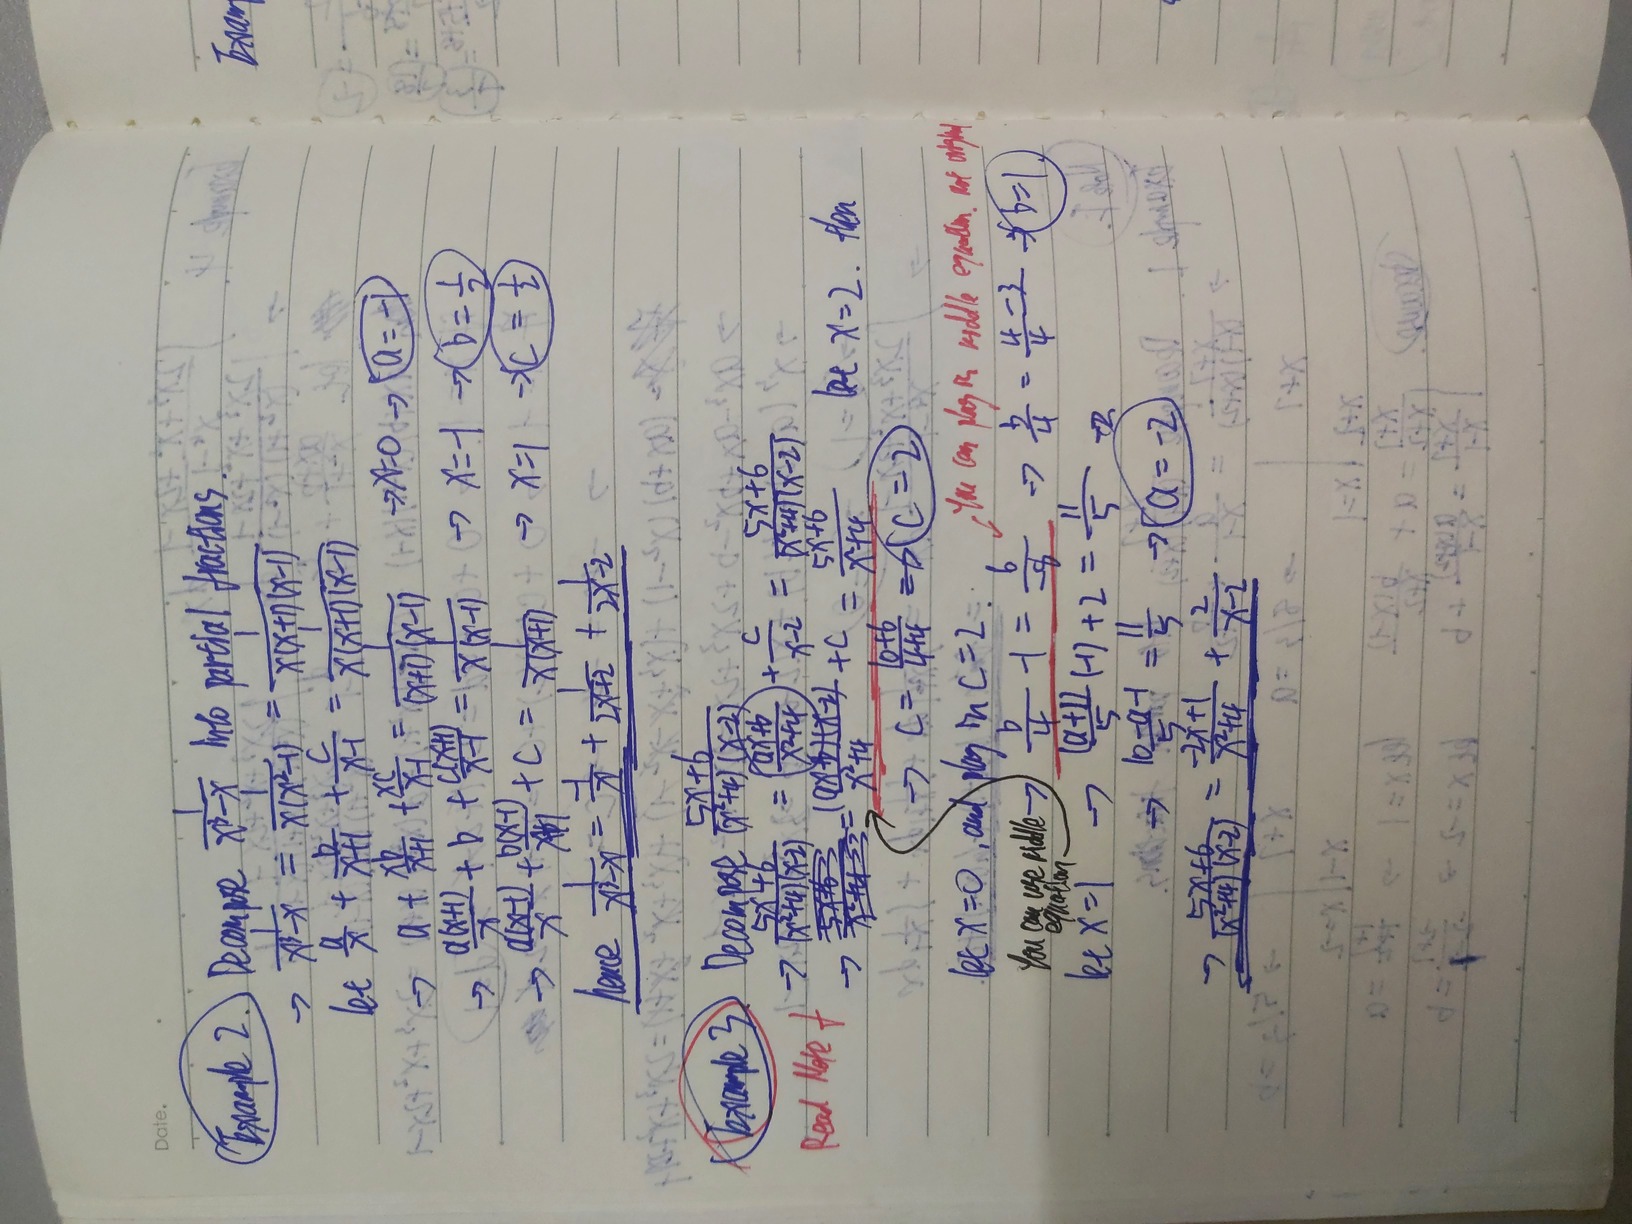 Date.
Example 2. Decompose 1/(x³-x) into partial fractions.
→ 1/(x³-x) = 1/(x(x²-1)) = 1/(x(x+1)(x-1))
let a/x + b/(x+1) + c/(x-1) = 1/(x(x+1)(x-1))
→ a + xb/(x+1) + xc/(x-1) = 1/((x+1)(x-1)) → x=0 → a=-1
→ a(x+1)/x + b + c(x+1)/(x-1) = 1/(x(x-1)) → x=-1 → b=1/2
→ a(x-1)/x + b(x-1)/(x+1) + c = 1/(x(x+1)) → x=1 → c=1/2
hence 1/(x³-x) = -1/x + 1/(2x+2) + 1/(2x-2)
Example 3. Decompose (5x+6)/((x²+4)(x-2))
→ (5x+6)/((x²+4)(x-2)) = (ax+b)/(x²+4) + c/(x-2) = (5x+6)/((x²+4)(x-2))
Read Note ↑
→ = (ax+b)(x-2)/(x²+4) + c = (5x+6)/(x²+4) let x=2. then
→ c = (10+6)/(4+4) → c=2
let x=0, and plug in c=2.
You can plug in middle equation, not original
You can use middle equation
→ b/4 - 1 = 6/-8 → b/4 = (4-3)/4 → b=1.
let x=1 → (a+1)/5 (-1) + 2 = 11/5
→ (10-a-1)/5 = 11/5 → a=-2
→ (5x+6)/((x²+4)(x-2)) = (-2x+1)/(x²+4) + 2/(x-2)
Exam